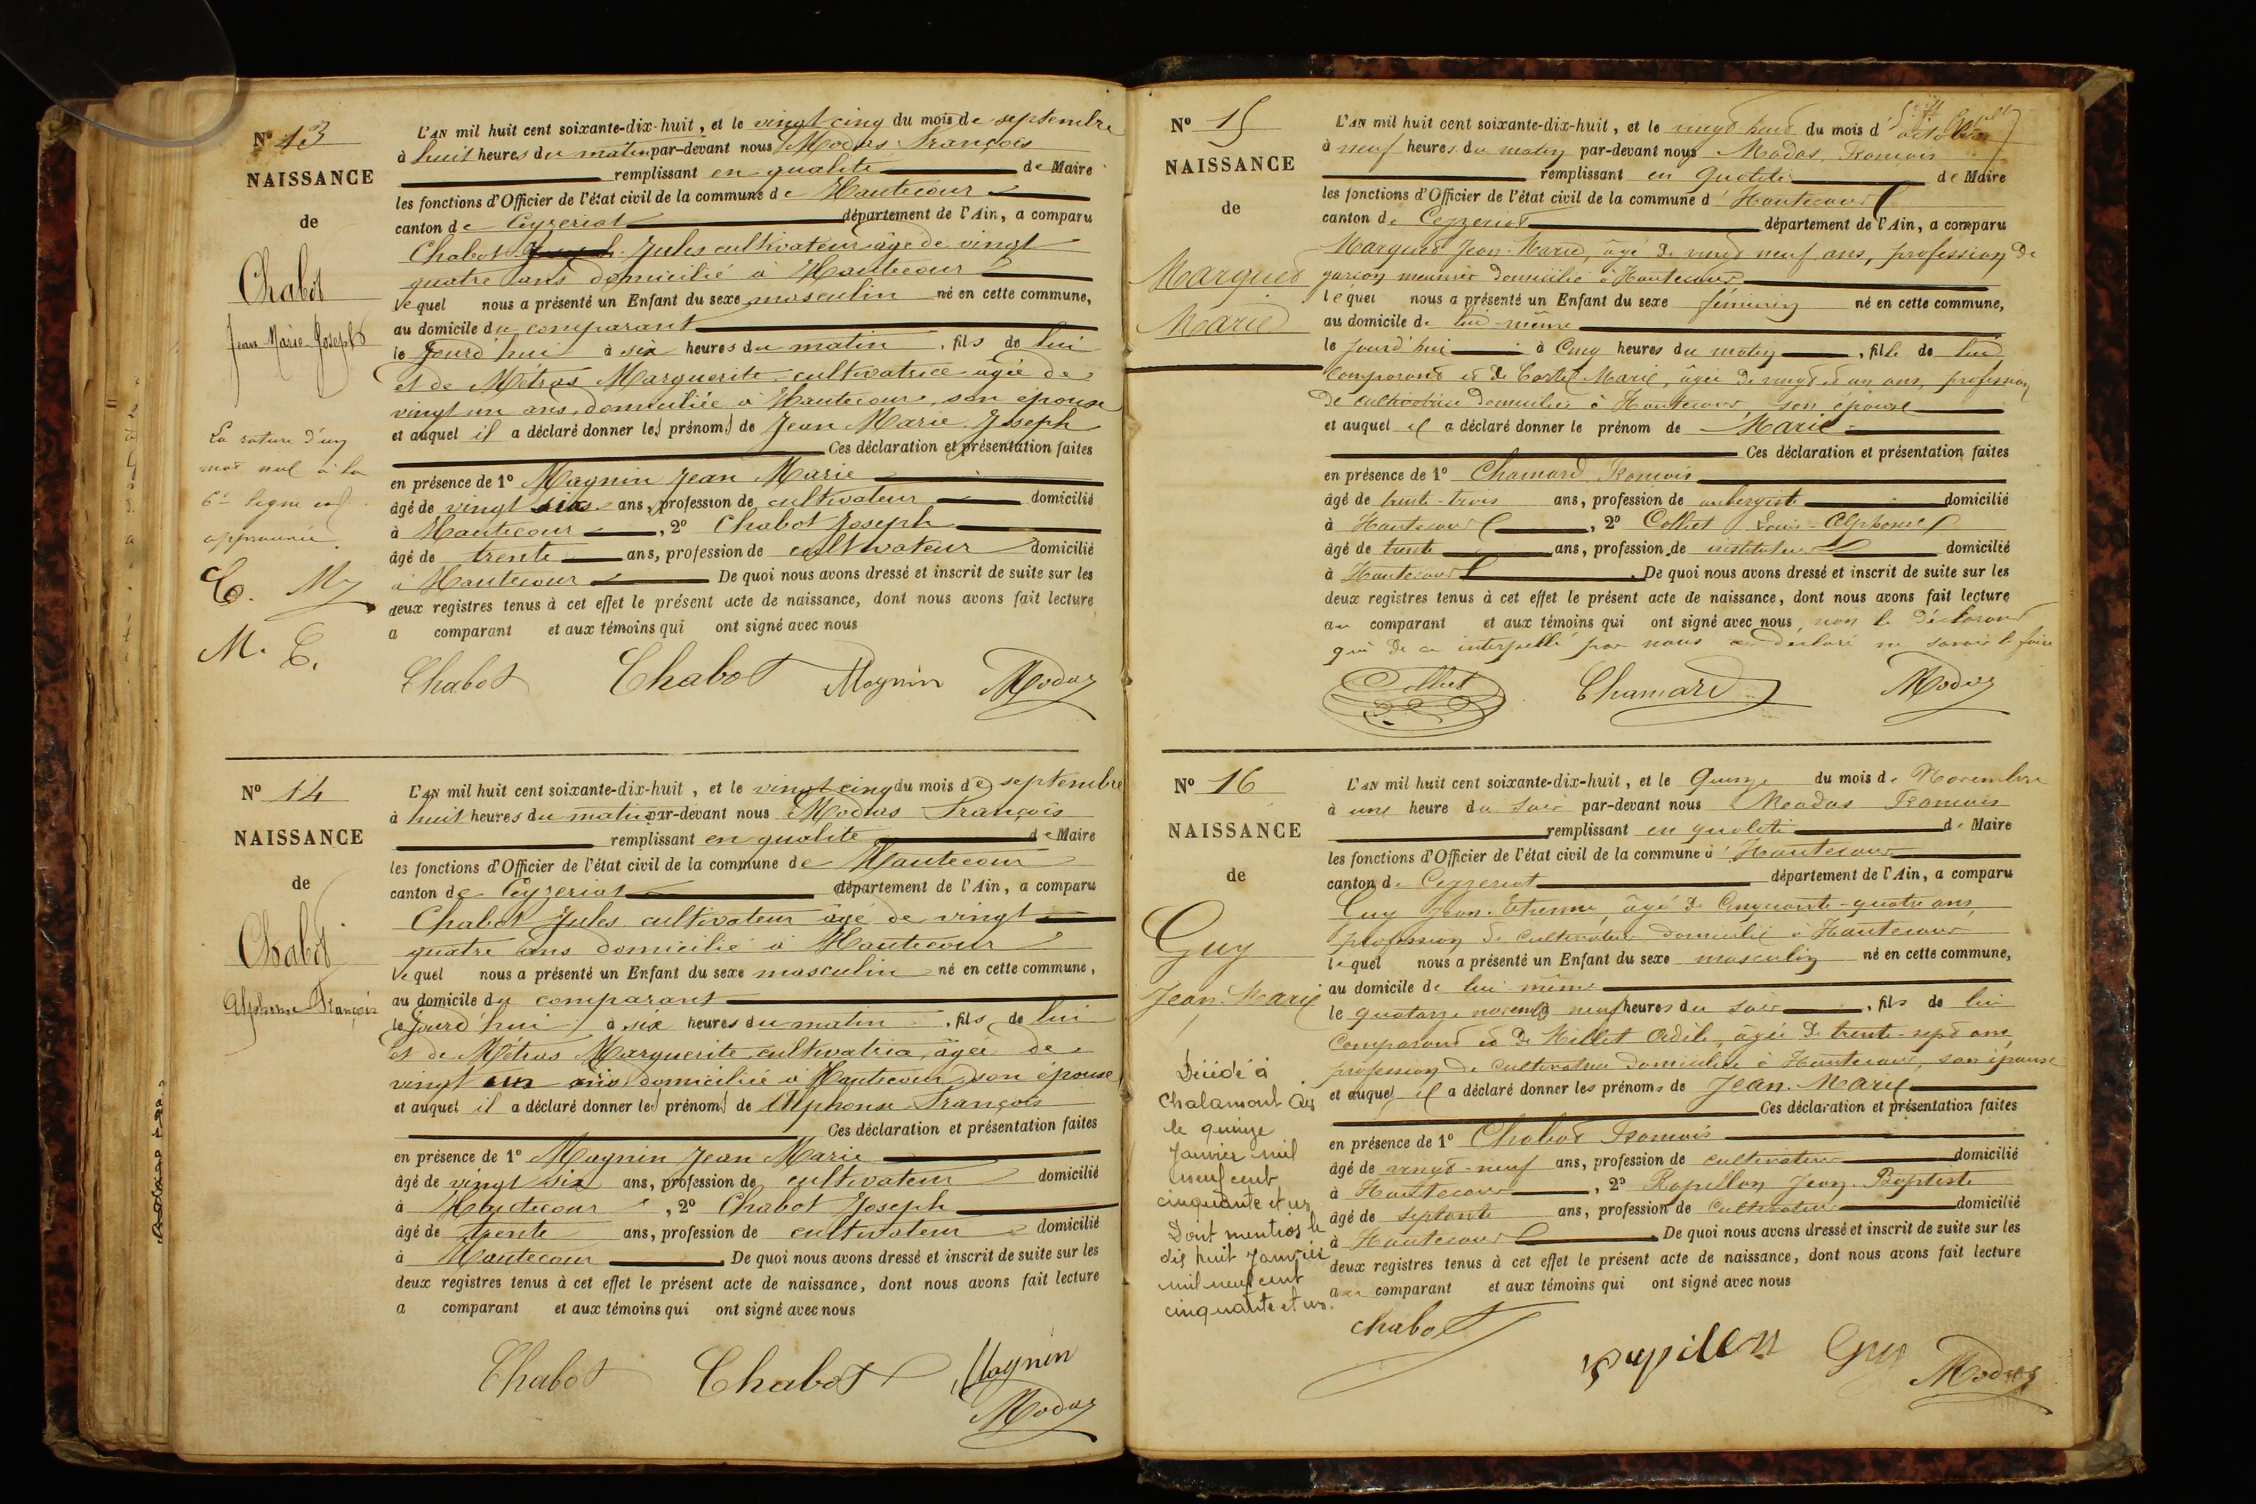 Nº 13
NAISSANCE
de
Chabot
Jean Marie Joseph
La rature d'un
mot nul à la
6e ligne est
approuvée.
C. M
M. C.
L'AN mil huit cent soixante-dix-huit, et le vingt cinq du mois de septembre
à huit heures du matin par-devant nous Modas François
remplissant en qualité de Maire
les fonctions d'Officier de l'état civil de la commune de Hautecour
canton de Ceyzeriat département de l'Ain, a comparu
Chabot Jules cultivateur âgé de vingt
quatre ans domicilié à Hautecour
lequel nous a présenté un Enfant du sexe masculin né en cette commune,
au domicile du comparant
le jourd'hui à six heures du matin, fils de lui
et de Métras Marguerite cultivatrice âgée de
vingt un ans, domiciliée à Hautecour, son épouse
et auquel il a déclaré donner les prénoms de Jean Marie Joseph
Ces déclaration et présentation faites
en présence de 1º Magnin Jean Marie
âgé de vingt six ans, profession de cultivateur domicilié
à Hautecour, 2º Chabot Joseph
âgé de trente ans, profession de cultivateur domicilié
à Hautecour De quoi nous avons dressé et inscrit de suite sur les
deux registres tenus à cet effet le présent acte de naissance, dont nous avons fait lecture
a comparant et aux témoins qui ont signé avec nous
Chabot Chabot Magnin Modas
Nº 14
NAISSANCE
de
Chabot
Alphonse François
L'AN mil huit cent soixante-dix-huit, et le vingt cinq du mois de septembre
à huit heures du matin par-devant nous Modas François
remplissant en qualité de Maire
les fonctions d'Officier de l'état civil de la commune de Hautecour
canton de Ceyzeriat département de l'Ain, a comparu
Chabot Jules cultivateur âgé de vingt
quatre ans domicilié à Hautecour
lequel nous a présenté un Enfant du sexe masculin né en cette commune,
au domicile du comparant
le jourd'hui à six heures du matin, fils de lui
et de Métras Marguerite cultivatrice, âgée de
vingt un ans domiciliée à Hautecour son épouse
et auquel il a déclaré donner les prénoms de Alphonse François
Ces déclaration et présentation faites
en présence de 1º Magnin Jean Marie
âgé de vingt six ans, profession de cultivateur domicilié
à Hautecour, 2º Chabot Joseph
âgé de trente ans, profession de cultivateur domicilié
à Hautecour De quoi nous avons dressé et inscrit de suite sur les
deux registres tenus à cet effet le présent acte de naissance, dont nous avons fait lecture
a comparant et aux témoins qui ont signé avec nous
Chabot Chabot Magnin
Modas
Nº 15
NAISSANCE
de
Marguet
Marie
L'AN mil huit cent soixante-dix-huit, et le vingt huit du mois d'octobre
à neuf heures du matin par-devant nous Modas, François
remplissant en qualité de Maire
les fonctions d'Officier de l'état civil de la commune d'Hautecour
canton de Ceyzeriat département de l'Ain, a comparu
Marguet Jean-Marie, âgé de vingt neuf ans, profession de
garçon meunier domicilié à Hautecour
lequel nous a présenté un Enfant du sexe féminin né en cette commune,
au domicile de lui-même
le jourd'hui à cinq heures du matin, fille de lui
comparant et de Cortet Marie, âgée de vingt et un ans, profession
de cultivatrice domiciliée à Hautecour, son épouse
et auquel il a déclaré donner le prénom de Marie
Ces déclaration et présentation faites
en présence de 1º Chamard François
âgé de trente-trois ans, profession de aubergiste domicilié
à Hautecour, 2º Colliet Louis-Alphonse
âgé de trente ans, profession de instituteur domicilié
à Hautecour. De quoi nous avons dressé et inscrit de suite sur les
deux registres tenus à cet effet le présent acte de naissance, dont nous avons fait lecture
au comparant et aux témoins qui ont signé avec nous, non le déclarant
qui de ce interpellé par nous a déclaré ne savoir le faire
Colliet Chamard Modas
Nº 16
NAISSANCE
de
Guy
Jean-Marie
Décédé à
Chalamont Ain
le quinze
Janvier mil
neuf cent
cinquante et un
Dont mention le
dix huit Janvier
mil neuf cent
cinquante et un.
L'AN mil huit cent soixante-dix-huit, et le Quinze du mois de Novembre
à une heure du soir par-devant nous Modas François
remplissant en qualité de Maire
les fonctions d'Officier de l'état civil de la commune d'Hautecour
canton de Ceyzeriat département de l'Ain, a comparu
Guy Jean-Etienne, âgé de cinquante-quatre ans,
profession de cultivateur domicilié à Hautecour
lequel nous a présenté un Enfant du sexe masculin né en cette commune,
au domicile de lui même
le quatorze novembre neuf heures du soir, fils de lui
comparant et de Millet Odile, âgée de trente-sept ans,
profession de cultivatrice domiciliée à Hautecour, son épouse
et auquel il a déclaré donner les prénoms de Jean-Marie
Ces déclaration et présentation faites
en présence de 1º Chabot François
âgé de vingt-neuf ans, profession de cultivateur domicilié
à Hautecour, 2º Papillon Jean-Baptiste
âgé de septante ans, profession de cultivateur domicilié
à Hautecour. De quoi nous avons dressé et inscrit de suite sur les
deux registres tenus à cet effet le présent acte de naissance, dont nous avons fait lecture
au comparant et aux témoins qui ont signé avec nous
chabot papillon Guy Modas